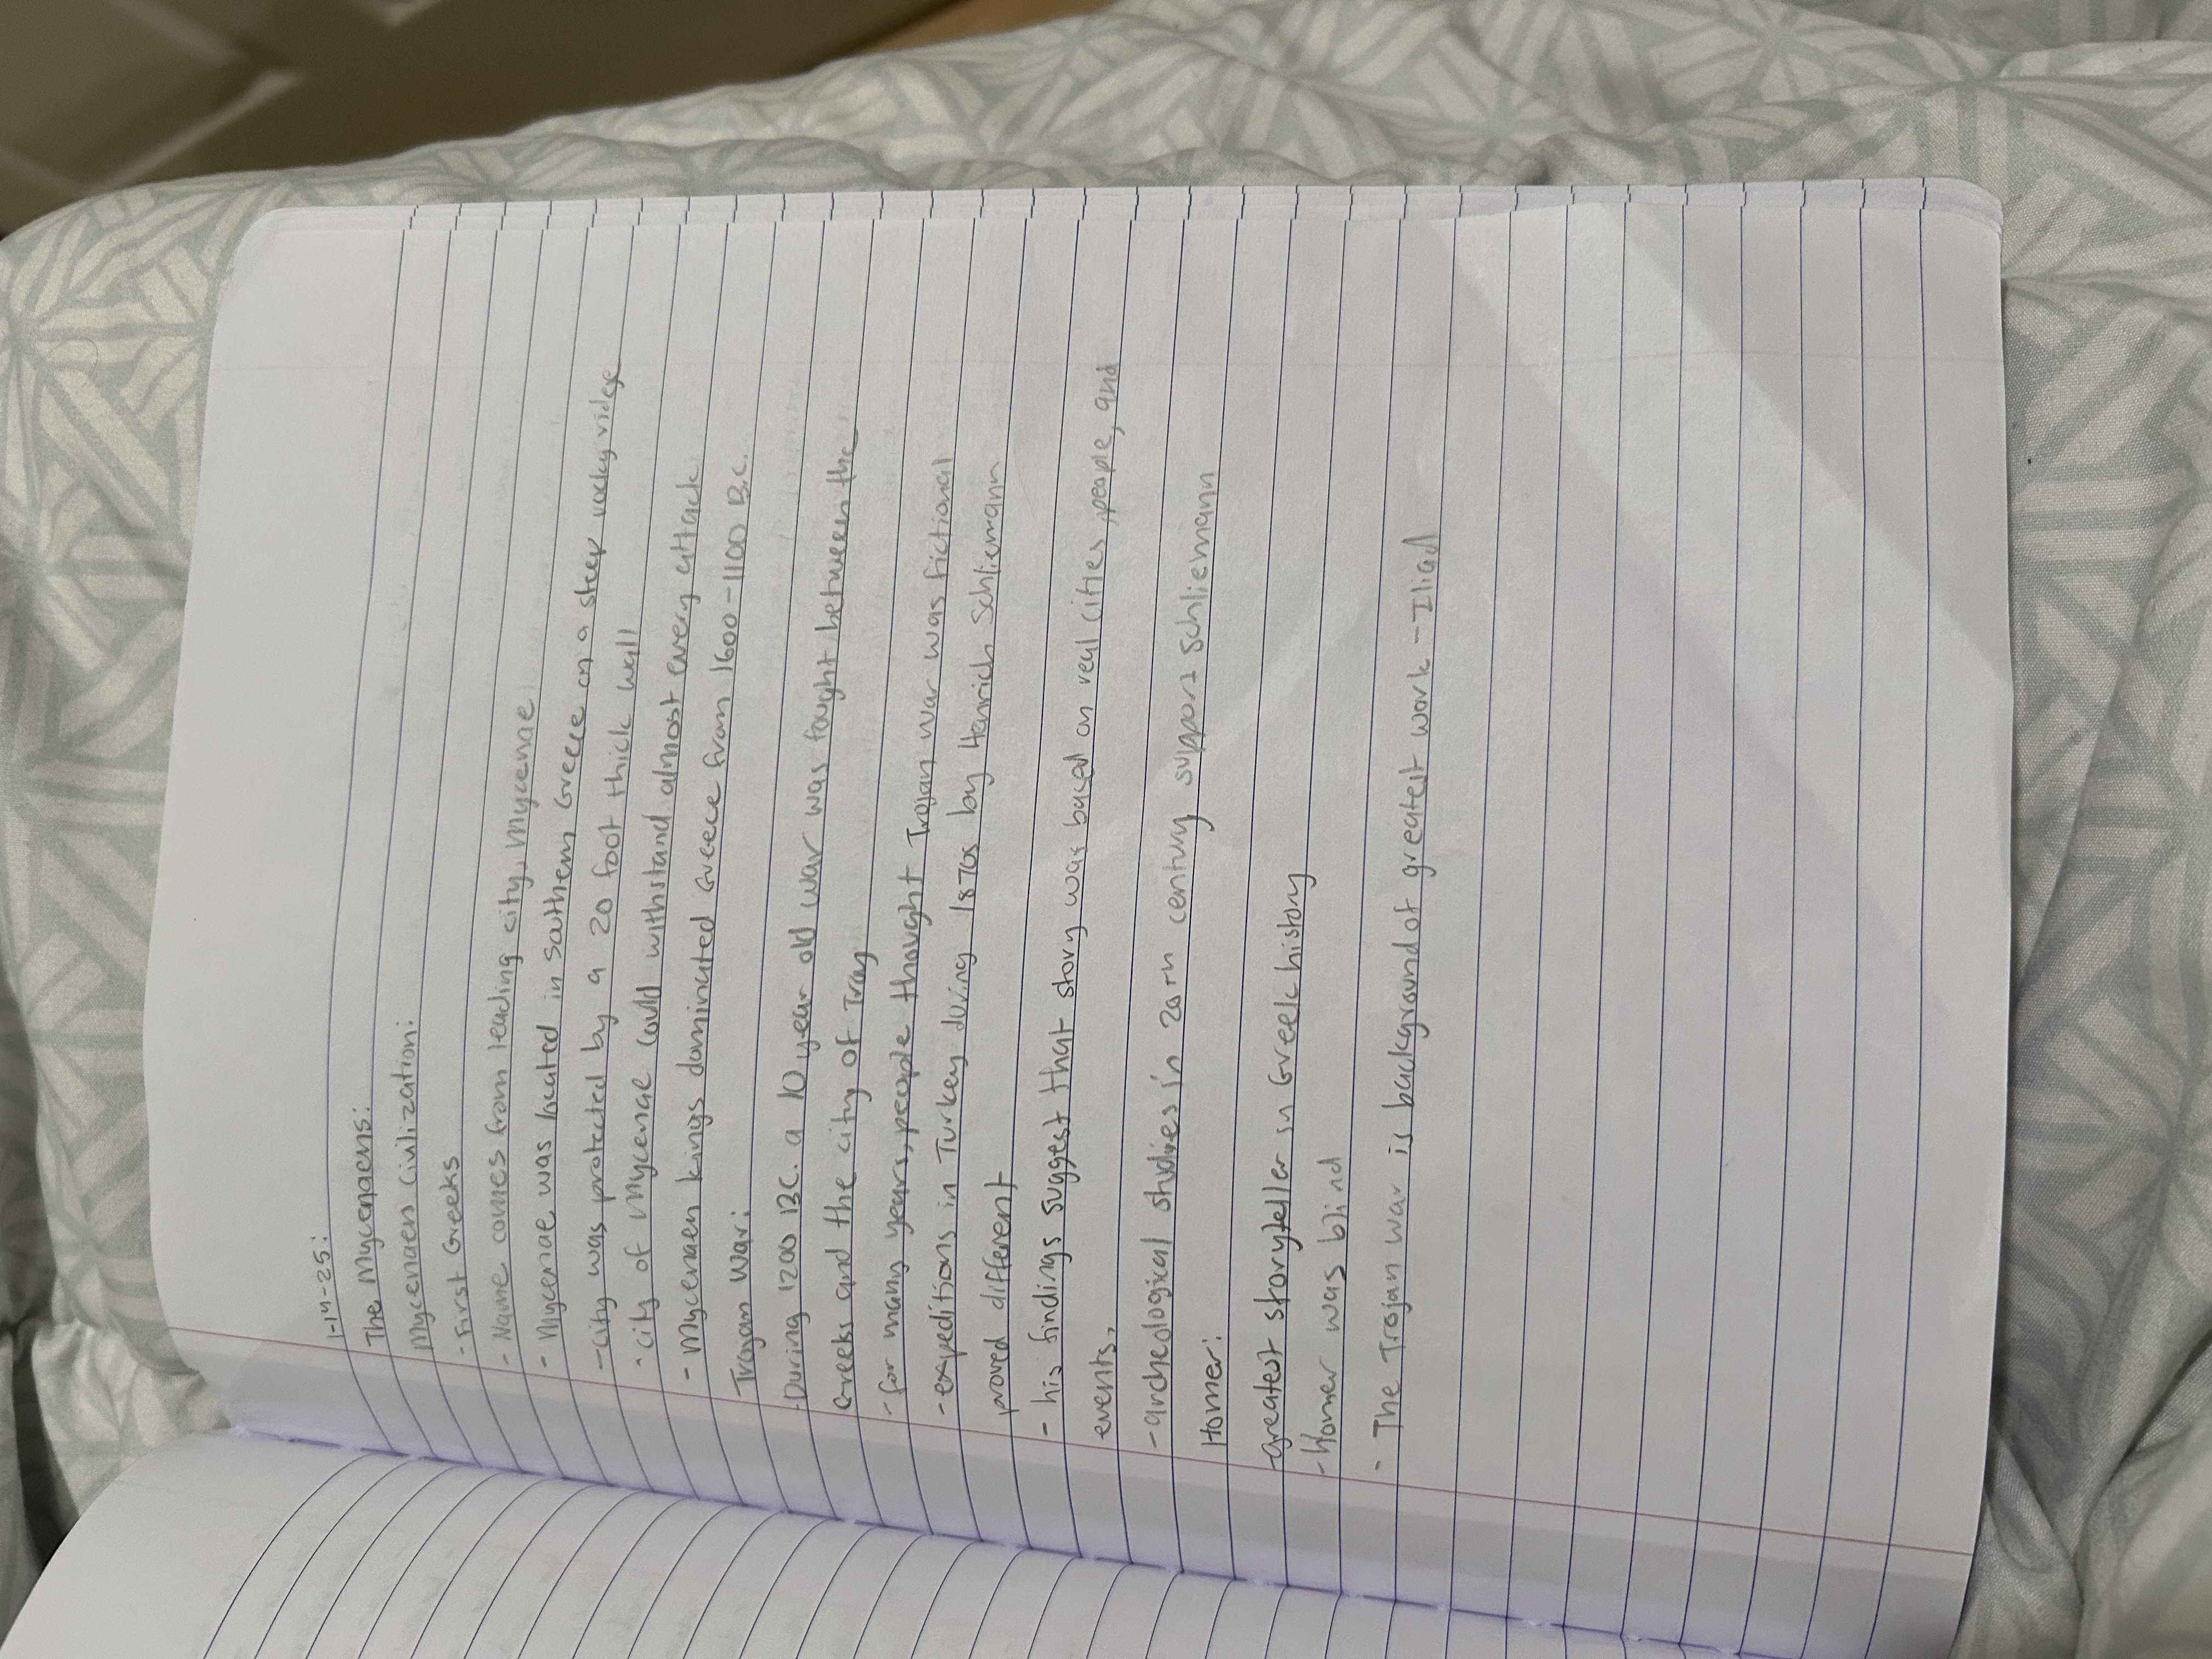 1-14-25:
The Mycenaens:
Mycenaen civilization:
- First Greeks
- Name comes from leading city, Mycenae
- Mycenae was located in southern Greece on a steep rocky ridge
- City was protected by a 20 foot thick wall
- City of Mycenae could withstand almost every attack
- Mycenaen kings dominated Greece from 1600-1100 B.C.
Trojan War:
- During 1200 BC. a 10 year old war was fought between the
Greeks and the city of Troy
- for many years, people thought Trojan War was fictional
- expeditions in Turkey during 1870s by Henrich Schliemann
proved different
- his findings suggest that story was based on real cities, people, and
events.
- archeological studies in 20th century support Schliemann
Homer:
- Greatest storyteller in Greek history
- Homer was blind
- The Trojan War is background of greatest work - Iliad